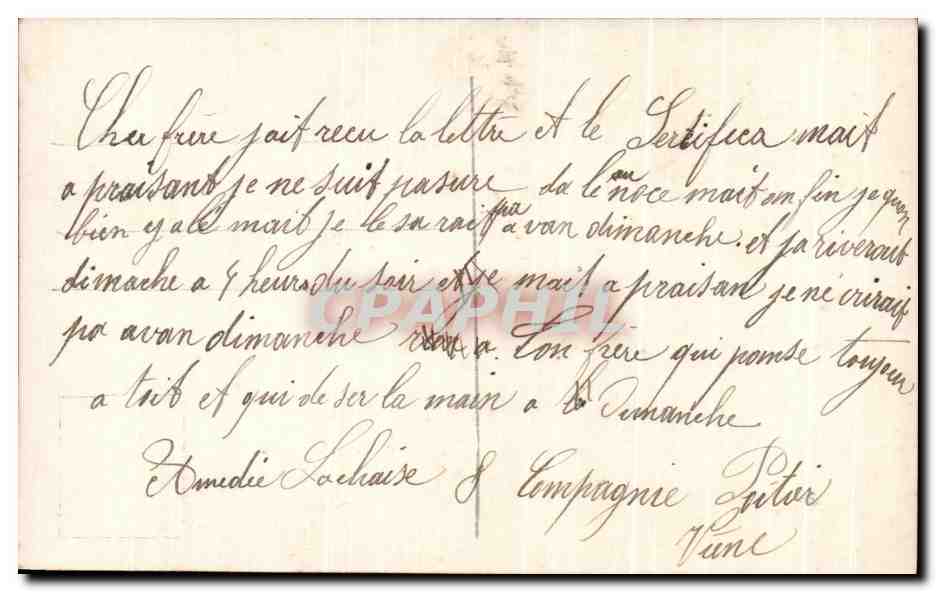 Cher frère jait recu la lettre et le Sertifica mait
a praisant je ne suit pasure da lé au noce mait en fin je quon
bien y alé mait je le sa rait pa a van dimanche. et ja riverait
dimache a 4 heurs du soir et je mait a praisan je né crirait
pa avan dimanche a. Ton frère qui pomse toujour
a toit et qui de ser la main a Dimanche
Amedée Lachaise 8 Compagnie Poitier
Viene
CPAPHIL